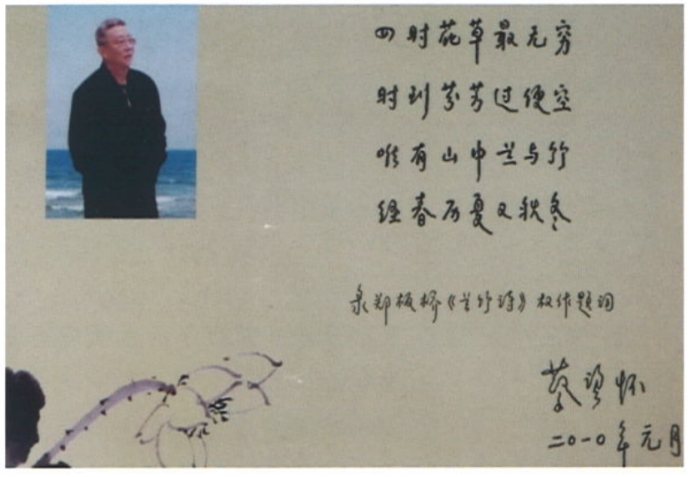 四时花草最无穷
时到芬芳过便空
唯有山中兰与竹
经春历夏又秋冬
录郑板桥《兰竹诗》权作题词
蔡望怀
二〇一〇年元月